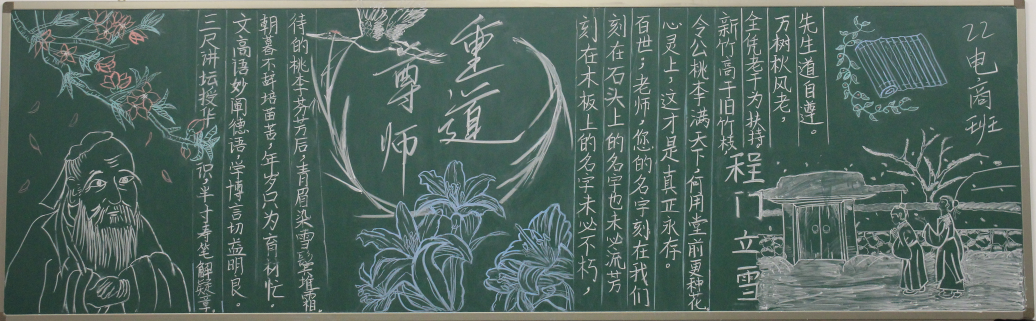 三尺讲坛授华积,半寸弄笔解疑章.
文高语妙阐德语,学博言切益明良。
朝暮不辞培苗苦,年岁只为育材忙.
待的桃李芬芳后,青眉染雪鬓堆霜.
尊师
重道
刻在木板上的名字未必不朽,
刻在石头上的名字也未必流芳
百世;老师,您的名字刻在我们
心灵上,这才是真正永存。
令公桃李满天下,何用堂前更种花
新竹高于旧竹枝
全凭老干为扶持
万树秋风老,
先生道自尊。
程门立雪
22电商班